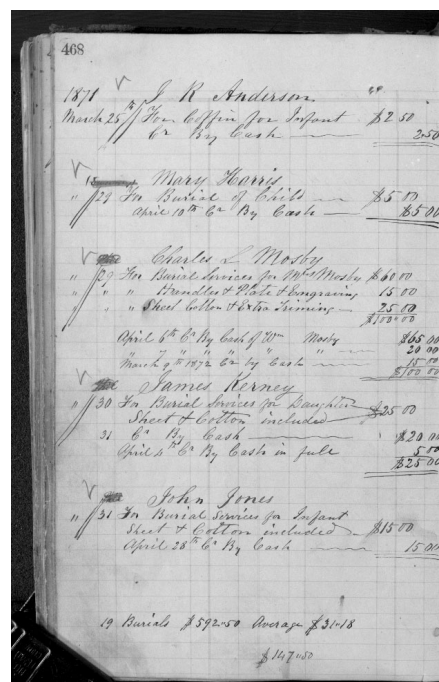 468
1871 J R Anderson
March 25th For Coffin for Infant $2 50
Cr By Cash 2.50
Mary Harris
" 29 For Burial of Child $5 00
April 10th Cr By Cash $5 00
Charles L Mosby
" 29 For Burial Services for Mrs Mosby $60 00
" " Handles & Plate & Engraving 15 00
" " Sheet Cotton & Extra Triming 25 00
$100.00
April 6th Cr By Cash of Wm Mosby $65 00
" 7 " " " " " 20 00
March 9th 1872 Cr by Cash 15 00
$100 00
James Kerney
" 30 For Burial Services for Daughter
Sheet & Cotton included $25 00
31 Cr By Cash $20 00
April 4th Cr By Cash in full 5 00
$25 00
John Jones
" 31 For Burial Services for Infant
Sheet & Cotton included $15 00
April 28th Cr By Cash 15 00
19 Burials $592.50 Average $31.18
$147.50